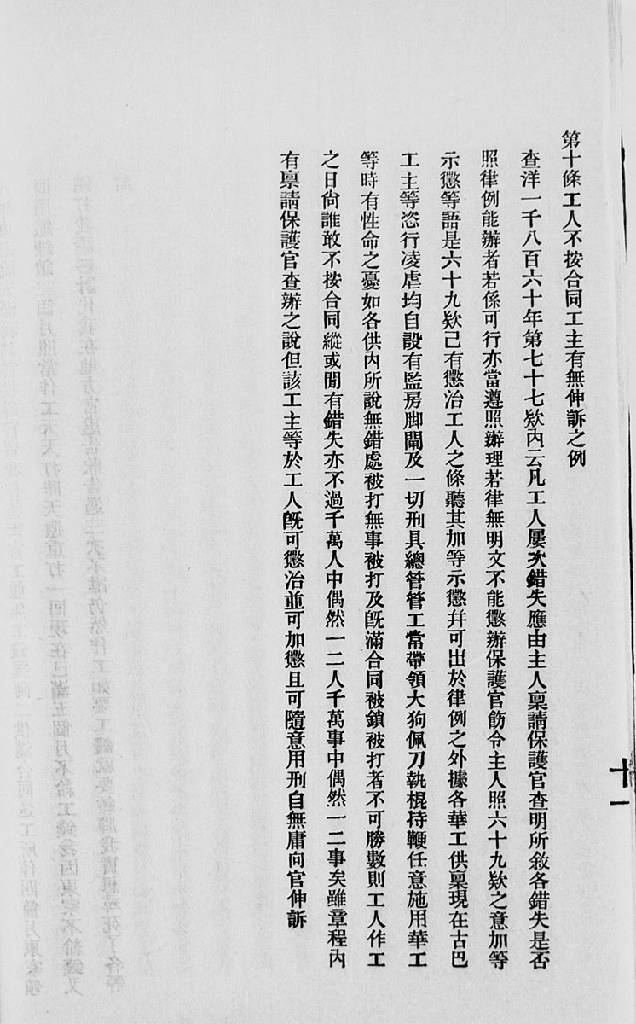 第十條工人不按合同工主有無伸訴之例
查洋一千八百六十年第七十七欵內云凡工人屢次錯失應由主人稟請保護官查明所敘各錯失是否
照律例能辦者若係可行亦當遵照辦理若律無明文不能懲辦保護官飭令主人照六十九欵之意加等
示懲等語是六十九欵已有懲治工人之條聽其加等示懲幷可出於律例之外據各華工供稟現在古巴
工主等恣行凌虐均自設有監房脚閘及一切刑具總管管工當帶領大狗佩刀執棍持鞭任意施用華工
等時有性命之憂如各供內所說無錯處被打無事被打及旣滿合同被鎖被打者不可勝數則工人作工
之日尙誰敢不按合同縱或間有錯失亦不過千萬人中偶然一二人千萬事中偶然一二事矣雖章程內
有稟請保護官查辦之說但該工主等於工人旣可懲治並可加懲且可隨意用刑自無庸向官伸訴
十一